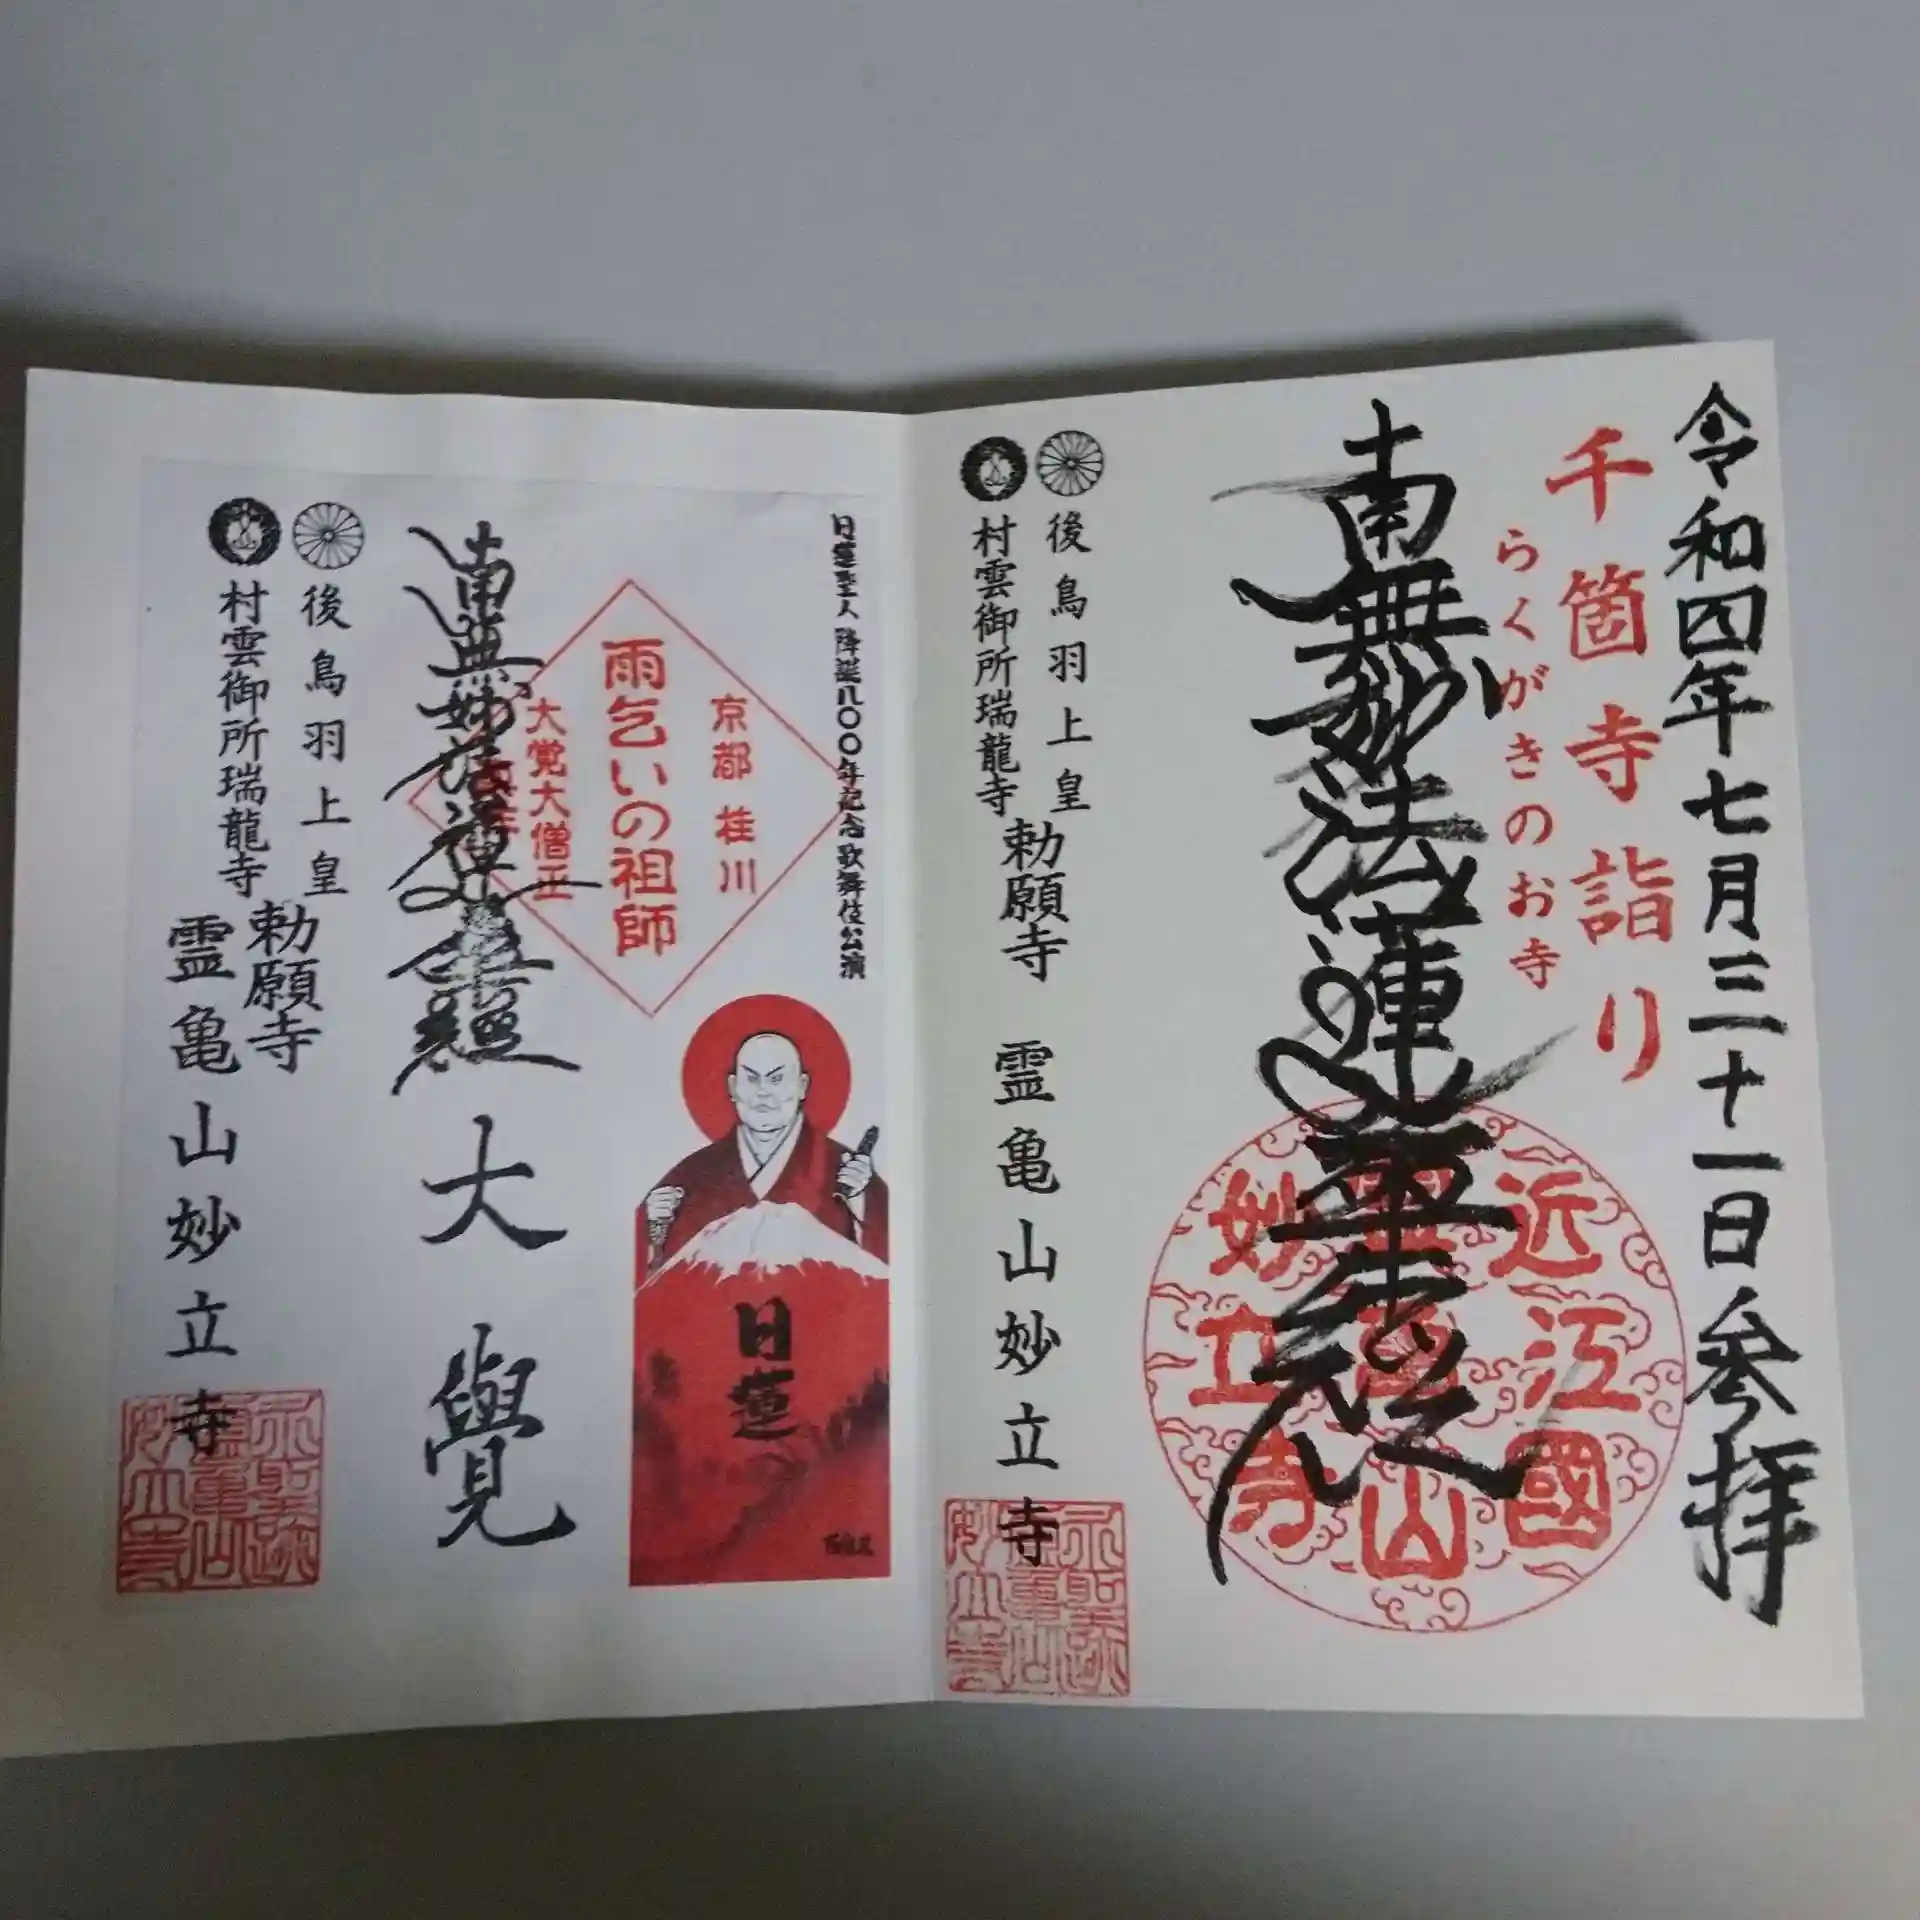 令和四年七月三十一日参拝
千箇寺詣り
らくがきのお寺
南無妙法蓮華経
近江國
霊亀山
妙立寺
後鳥羽上皇
村雲御所瑞龍寺
勅願寺
霊亀山妙立寺
日蓮聖人降誕八〇〇年記念歌舞伎公演
京都 桂川
雨乞いの祖師
大覚大僧正
南無妙法蓮華経
大覺
日蓮
後鳥羽上皇
村雲御所瑞龍寺
勅願寺
霊亀山妙立寺